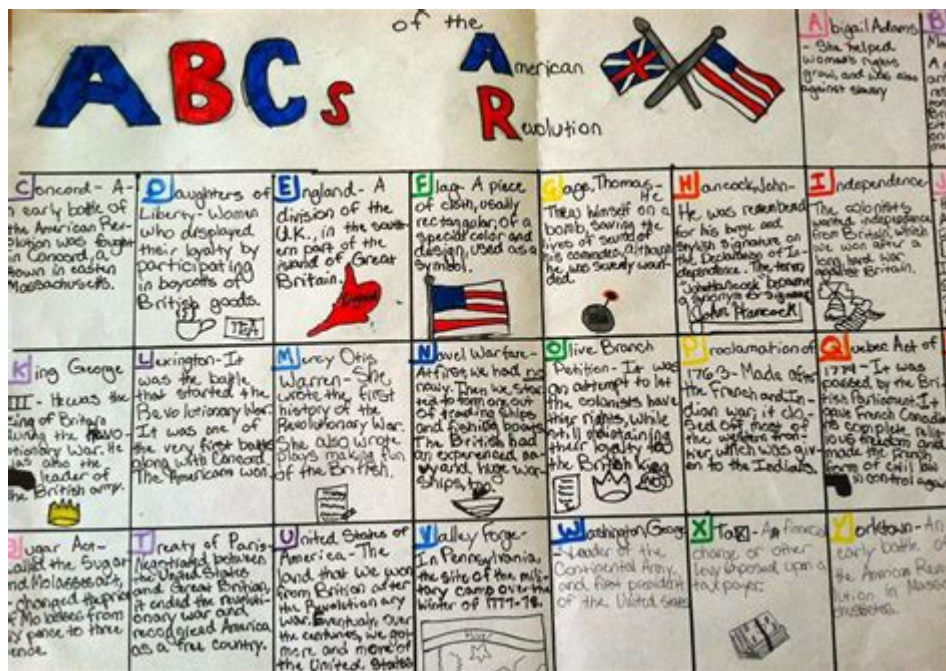 ABCs
of the
American
Revolution
Abigail Adams
- She helped
woman's rights
grow, and was also
against slavery
B
Concord- A-
n early battle of
the American Rev-
olution was fought
in Concord, a
town in eastern
Massachusetts.
Daughters of
Liberty- Women
who displayed
their loyalty by
participating
in boycots of
British goods.
TEA
England- A
division of the
U.K., in the south-
ern part of the
island of Great
Britain.
England
Flag- A piece
of cloth, usually
rectangular, of a
special color and
design, used as a
symbol.
Gage, Thomas-
He
Threw himself on a
bomb, saving the
lives of
his comrades, although
he was severly woun-
ded.
Hancock, John-
He was rememberd
for his large and
stylish signature on
the Declaration of In-
dependence. The term
"John Hancock" became
a synonym for signing
John Hancock
Independence
The colonists
wanted independence
from Britain, which
we won after a
long, hard war
against Britain.
King George
III- He was the
king of Britain
during the Revo-
lutionary War. He
was also the
leader of
the British army.
Lexington- It
was the battle
that started the
Revolutionary War.
It was one of
the very first battles
along with Concord.
The Americans won.
Mercy Otis
Warren- She
wrote the first
history of the
Revolutionary War.
She also wrote
plays making fun
of the British.
Naval Warfare-
At first we had no
navy. Then we star-
ted to team one out
of trading ships
and fishing boats
The British had
an experienced na-
vy and huge war
ships, too.
Olive Branch
Petition- It was
an attempt to let
the colonists have
their rights, while
still maintaining
their loyalty to
the British King
Proclamation of
1763- Made after
the French and In-
dian war; it clo-
sed off most of
the western fron-
tier, which was giv-
en to the Indians.
Quebec Act of
1774- It was
passed by the Brit-
ish Parliament. It
gave French Canadi-
ns complete relig-
ious freedom and
made the French
form of civil law
in control again
Sugar Act-
called the Sugar
and Molasses act,
changed the price
of Molasses from
pence to three
pence.
Treaty of Paris-
Negotiated between
the United States
and Great Britian,
it ended the revoluti-
onary war and
recognized America
as a free country.
United States of
America- The
land that we won
from British after
the Revolution ary
war. Eventualy, over
the centuries, we got
more and more of
the United States
Valley Forge-
In Pennsylvania,
the site of the mili-
tary camp over the
winter of 1777-78.
Washington, George
-Leader of the
Continental Army,
and first president
of the United States
X TaX- A financial
charge or other
levy imposed upon a
taxpayer.
Yorktown- An
early battle of
the American Revo-
lution in Massa-
chusetts.